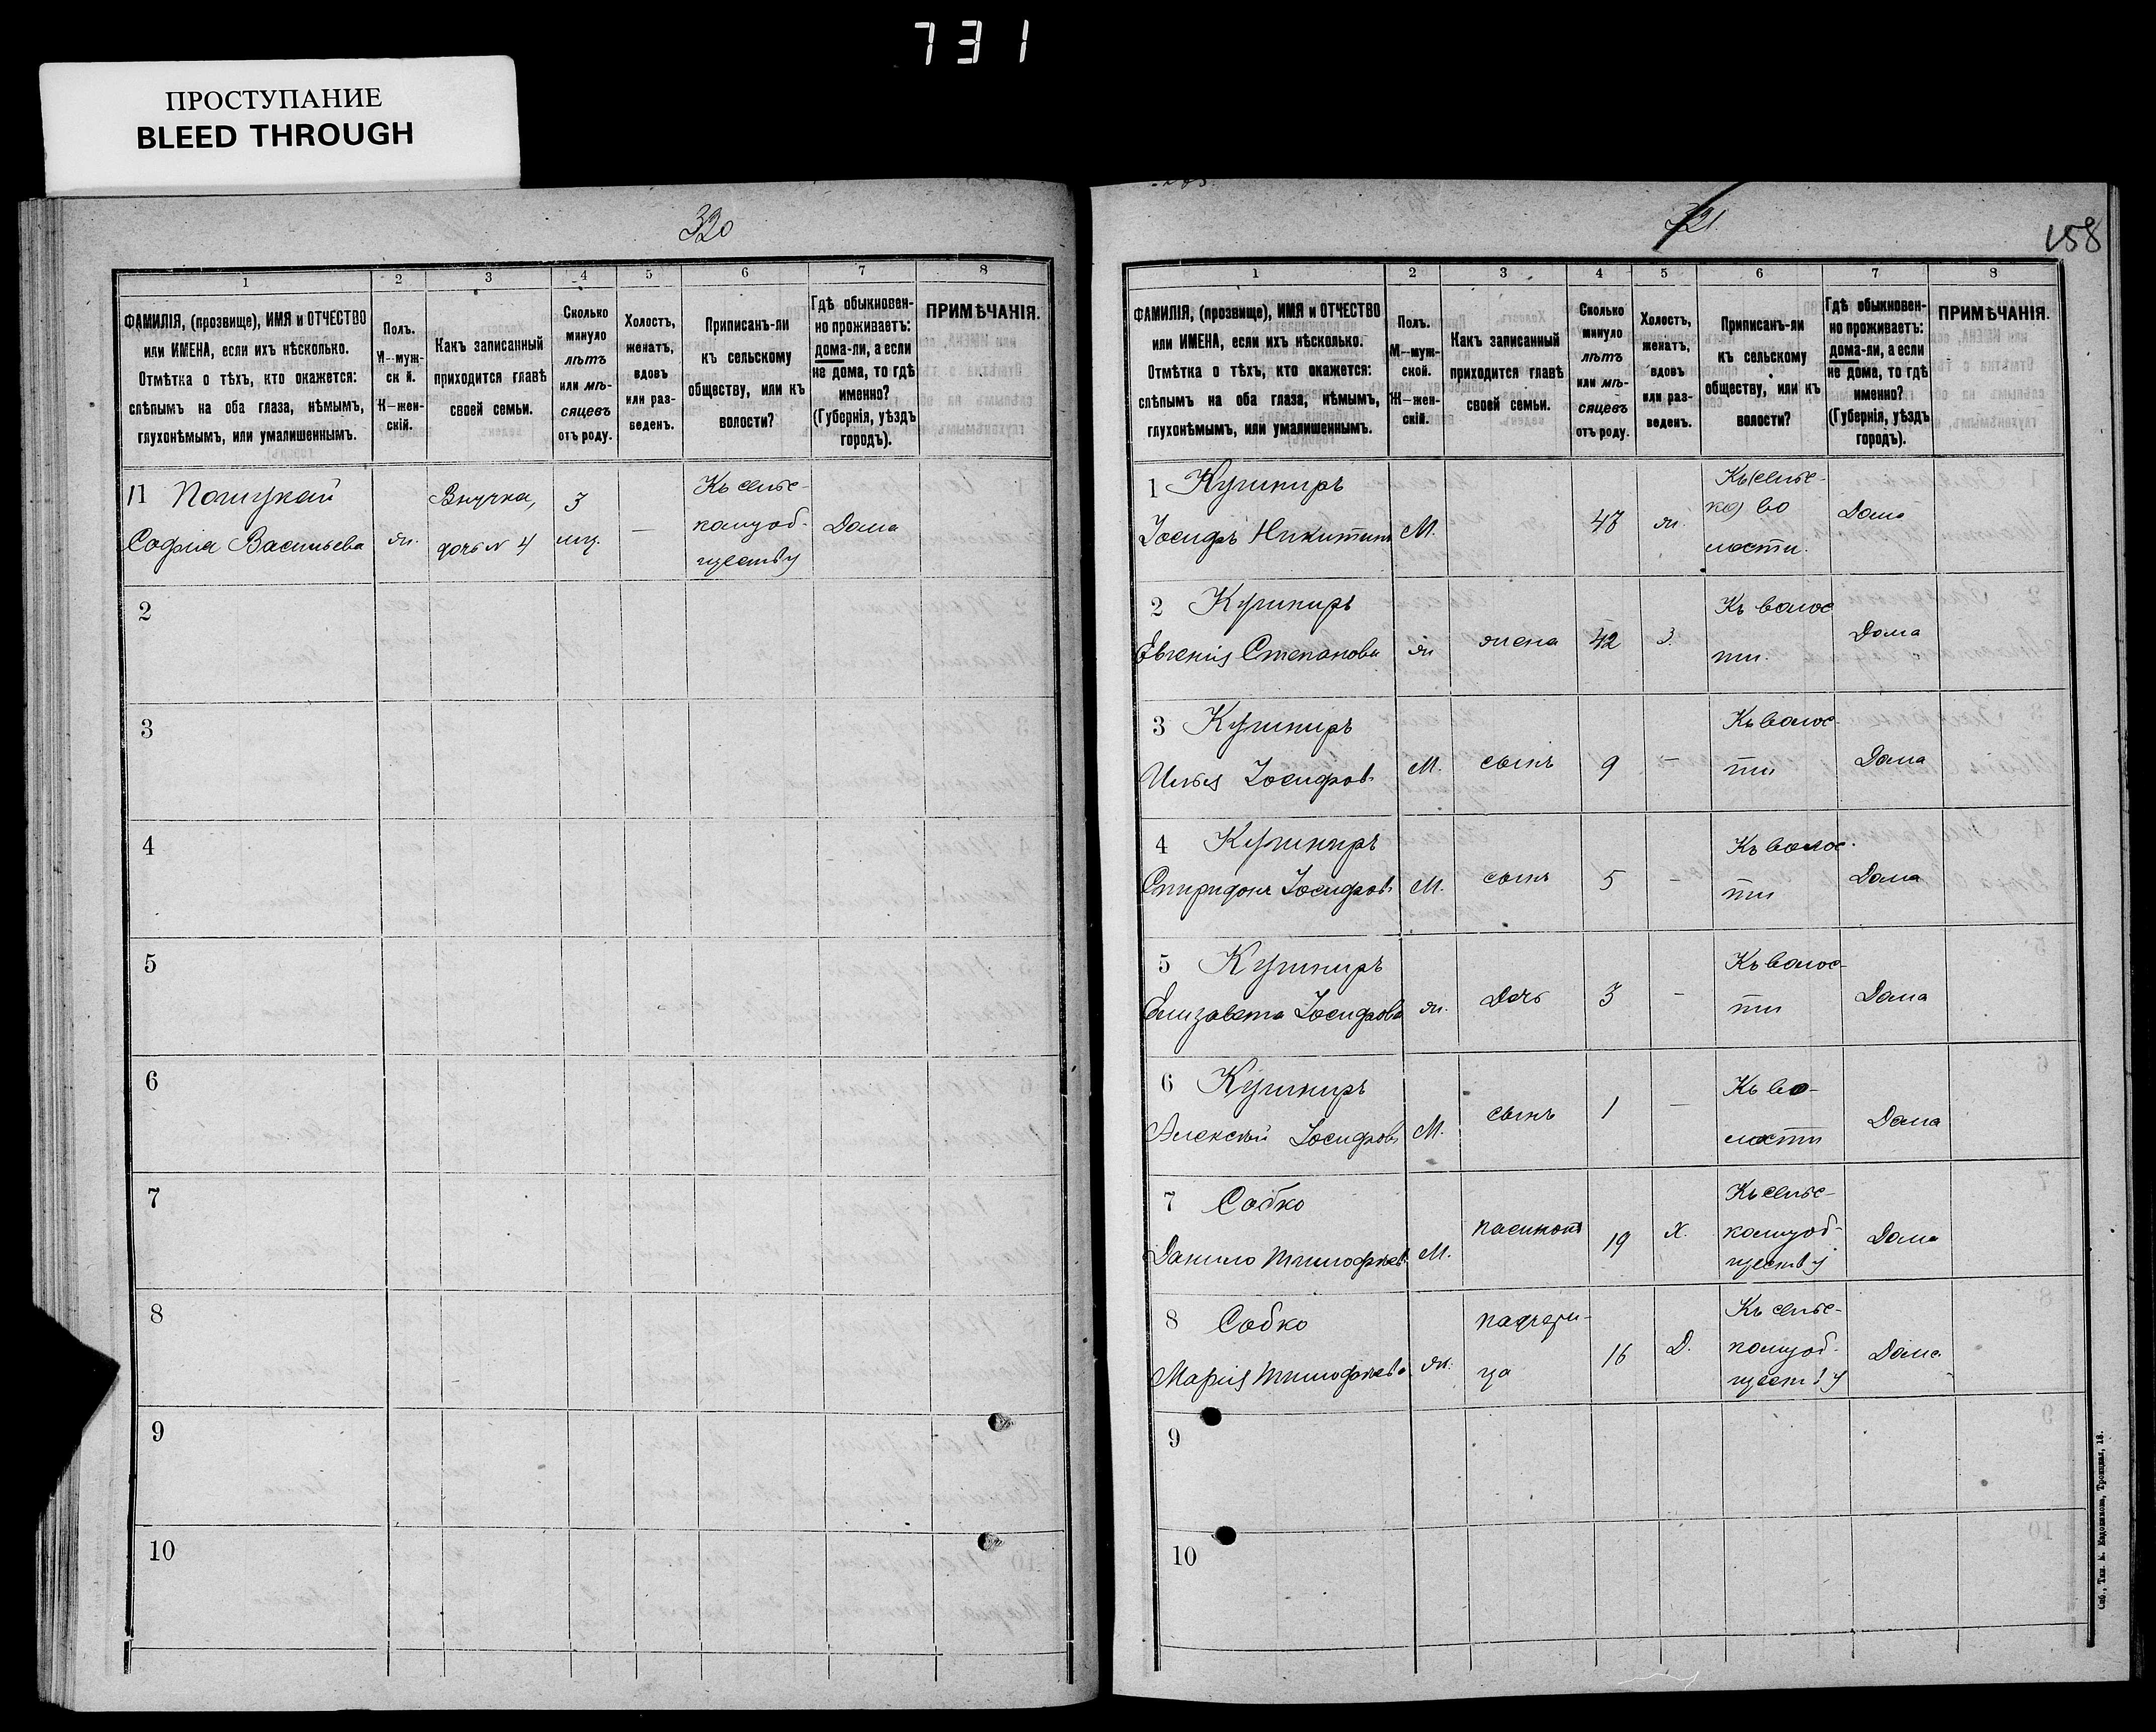 731
ПРОСТУПАНИЕ
BLEED THROUGH
320
1 2 3 4 5 6 7 8
ФАМИЛІЯ, (прозвище), ИМЯ и ОТЧЕСТВО или ИМЕНА, если ихъ нѣсколько. Отмѣтка о тѣхъ, кто окажется: слѣпымъ на оба глаза, нѣмымъ, глухонѣмымъ, или умалишеннымъ.
Полъ. М—муж-ск й. Ж—жен-скій.
Какъ записанный приходится главѣ своей семьи.
Сколько минуло лѣтъ или мѣ-сяцевъ отъ роду.
Холостъ, женатъ, вдовъ или раз-веденъ.
Приписанъ-ли къ сельскому обществу, или къ волости?
Гдѣ обыкновен-но проживаетъ: дома-ли, а если не дома, то гдѣ именно? (Губернія, уѣздъ городъ).
ПРИМѢЧАНІЯ.
11
Софія Васильева ж. Внучка, дочь № 4 3 мц. — Къ сельс-кому об-ществу Дома
2
3
4
5
6
7
8
9
10
321
158
1 2 3 4 5 6 7 8
ФАМИЛІЯ, (прозвище), ИМЯ и ОТЧЕСТВО или ИМЕНА, если ихъ нѣсколько. Отмѣтка о тѣхъ, кто окажется: слѣпымъ на оба глаза, нѣмымъ, глухонѣмымъ, или умалишеннымъ.
Полъ. М—муж-ской. Ж—жен-скій.
Какъ записанный приходится главѣ своей семьи.
Сколько минуло лѣтъ или мѣ-сяцевъ отъ роду.
Холостъ, женатъ, вдовъ или раз-веденъ.
Приписанъ-ли къ сельскому обществу, или къ волости?
Гдѣ обыкновен-но проживаетъ: дома-ли, а если не дома, то гдѣ именно? (Губернія, уѣздъ городъ).
ПРИМѢЧАНІЯ.
1 Кушниръ
Іосифъ Никитинъ М. 47 ж. во лости. Дома
2 Кушниръ
Евгенія Степанова ж жена 42 з. Къ волос ти. Дома
3 Кушниръ
Илья Іосифов. М. сынъ 9 — Къ волос-ти Дома
4 Кушниръ
Спиридонъ Іосифов. М. сынъ 5 — Къ волос-ти Дома
5 Кушниръ
Елизавета Іосифова ж. Дочь 3 — Къ волос-ти Дома
6 Кушниръ
Алексѣй Іосифовъ М. сынъ 1 — Къ во-лости Дома
7 Собко
Данило Тимофѣев. М. пасинокъ 19 Х. Къ сельс-кому об-ществу Дома
8 Собко
Марія Тимофѣева ж. падчери-ца 16 Д. Къ сельс-кому об-ществу Дома
9
10
Спб., Тип. Е. Евдокимова, Троицкая, 18.